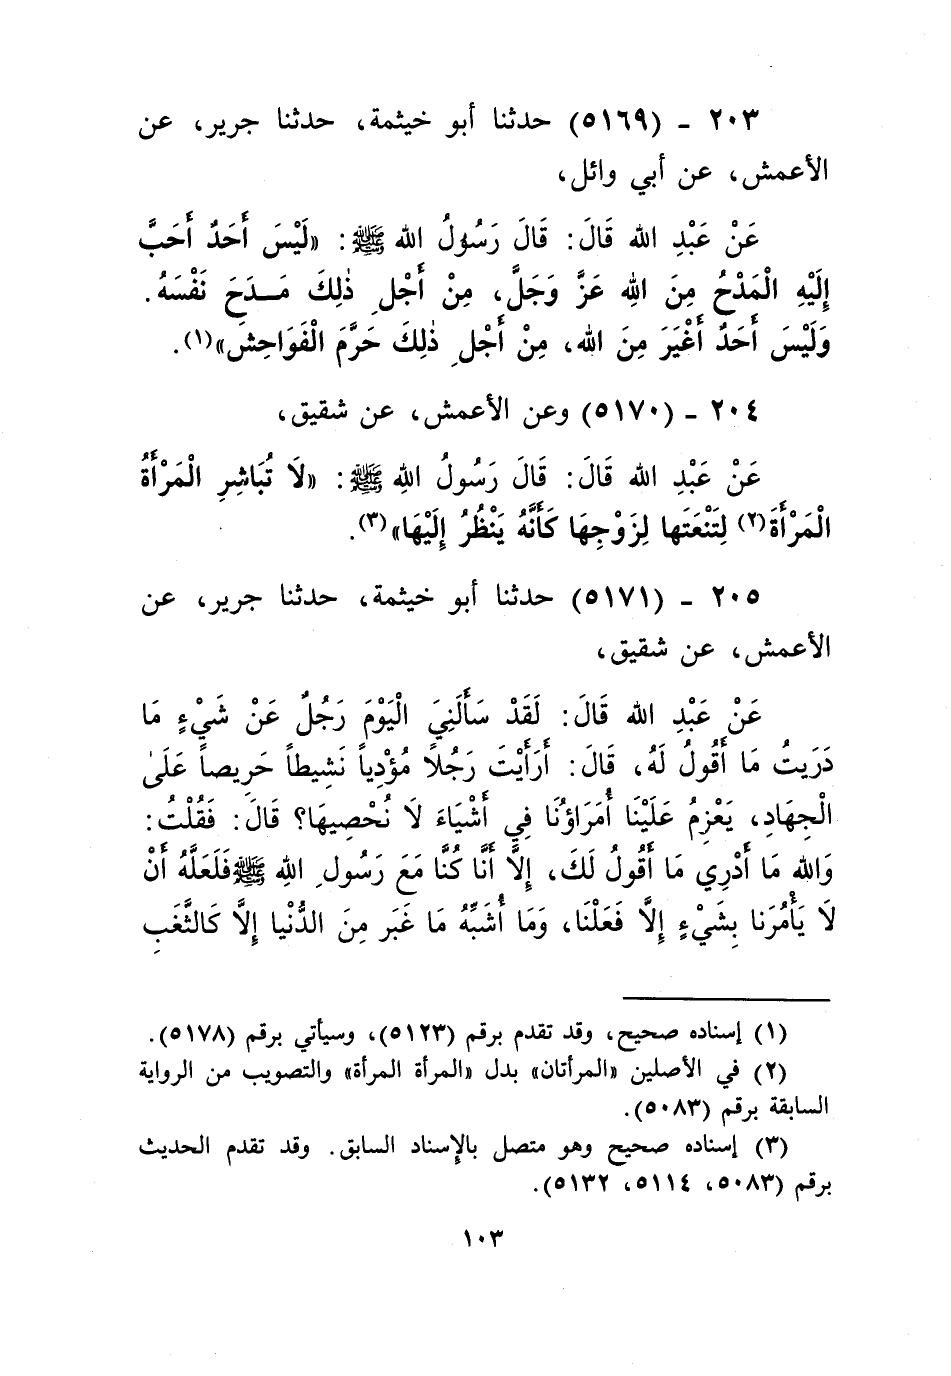 ٢٠٣ ـ (٥١٦٩) حدثنا أبو خيثمة، حدثنا جرير، عن
الأعمش، عن أبي وائل،
عَنْ عَبْدِ الله قَالَ: قَالَ رَسُولُ الله ﷺ: «لَيْسَ أَحَدٌ أَحَبَّ
إِلَيْهِ الْمَدْحُ مِنَ اللهِ عَزَّ وَجَلَّ، مِنْ أَجْلِ ذٰلِكَ مَـدَحَ نَفْسَهُ.
وَلَيْسَ أَحَدٌ أَغْيَرَ مِنَ الله، مِنْ أَجْلِ ذٰلِكَ حَرَّمَ الْفَوَاحِشَ»(١).
٢٠٤ ـ (٥١٧٠) وعن الأعمش، عن شقيق،
عَنْ عَبْدِ الله قَالَ: قَالَ رَسُولُ اللهِ ﷺ: «لَا تُبَاشِرِ الْمَرْأَةُ
الْمَرْأَةَ(٢) لِتَنْعَتَها لِزَوْجِهَا كَأَنَّهُ يَنْظُرُ إِلَيْهَا»(٣).
٢٠٥ ـ (٥١٧١) حدثنا أبو خيثمة، حدثنا جرير، عن
الأعمش، عن شقيق،
عَنْ عَبْدِ الله قَالَ: لَقَدْ سَأَلَنِيَ الْيَوْمَ رَجُلٌ عَنْ شَيْءٍ مَا
دَرَيتُ مَا أَقُولُ لَهُ، قَالَ: أَرَأَيْتَ رَجُلاً مُؤْدِياً نَشِيطاً حَرِيصاً عَلَىٰ
الْجِهَادِ، يَعْزِمُ عَلَيْنَا أُمَرَاؤُنَا فِي أَشْيَاءَ لَا نُحْصِيهَا؟ قَالَ: فَقُلْتُ:
وَالله مَا أَدْرِي مَا أَقُولُ لَكَ، إِلَّا أَنَّا كُنَّا مَعَ رَسُولِ اللهِ ﷺ فَلَعَلَّهُ أَنْ
لَا يَأْمُرَنا بِشَيْءٍ إِلَّا فَعَلْنَا، وَمَا أُشَبِّهُ مَا غَبَر مِنَ الدُّنْيا إِلَّا كَالثَّغَبِ
(١) إسناده صحيح، وقد تقدم برقم (٥١٢٣)، وسيأتي برقم (٥١٧٨).
(٢) في الأصلين «المرأتان» بدل «المرأة المرأة» والتصويب من الرواية
السابقة برقم (٥٠٨٣).
(٣) إسناده صحيح وهو متصل بالإسناد السابق. وقد تقدم الحديث
برقم (٥٠٨٣، ٥١١٤، ٥١٣٢).
١٠٣